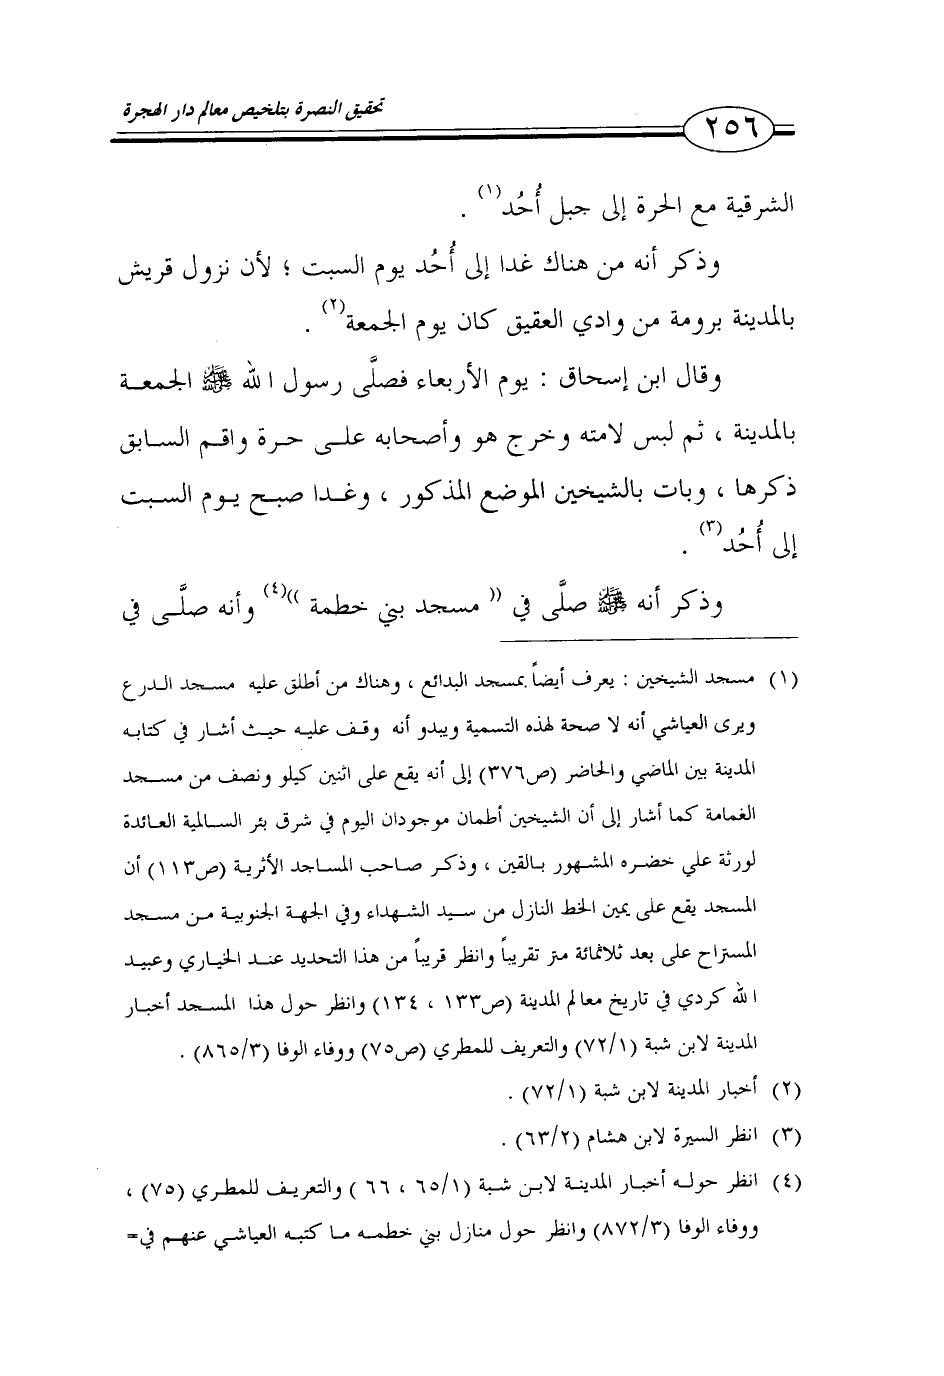 تحقيق النصرة بتلخيص معالم دار الهجرة
٢٥٦
الشرقية مع الحرة إلى جبل أُحُد(١) .
وذكر أنه من هناك غدا إلى أُحُد يوم السبت ؛ لأن نزول قريش
بالمدينة برومة من وادي العقيق كان يوم الجمعة(٢) .
وقال ابن إسحاق : يوم الأربعاء فصلَّى رسول الله ﷺ الجمعـة
بالمدينة ، ثم لبس لامته وخرج هو وأصحابه علـى حـرة واقـم السـابق
ذكرها ، وبات بالشيخين الموضع المذكور ، وغـدا صبـح يـوم السـبت
إلى أُحُد(٣) .
وذكر أنه ﷺ صلَّى في (( مسجد بني خطمة ))(٤) وأنه صلَّـى في
(١) مسجد الشيخين : يعرف أيضاً بمسجد البدائع ، وهناك من أطلق عليه مسـجد الـدرع
ويرى العياشي أنه لا صحة لهذه التسمية ويبدو أنه وقـف عليـه حيـث أشار في كتابـه
المدينة بين الماضي والحاضر (ص٣٧٦) إلى أنه يقع على اثنين كيلو ونصف من مسـجد
الغمامة كما أشار إلى أن الشيخين أطمان موجودان اليوم في شرق بئر السـالمية العـائدة
لورثة علي خضره المشهور بـالقين ، وذكـر صـاحب المسـاجد الأثريـة (ص١١٣) أن
المسجد يقع على يمين الخط النازل من سـيد الشـهداء وفي الجهة الجنوبيـة مـن مسـجد
المستراح على بعد ثلاثمائة متر تقريباً وانظر قريباً من هذا التحديد عنـد الخياري وعبيـد
الله كردي في تاريخ معالم المدينة (ص١٣٣ ، ١٣٤) وانظر حول هذا المسـجد أخبـار
المدينة لابن شبة (٧٢/١) والتعريف للمطري (ص٧٥) ووفاء الوفا (٨٦٥/٣) .
(٢) أخبار المدينة لابن شبة (٧٢/١) .
(٣) انظر السيرة لابن هشام (٦٣/٢) .
(٤) انظر حولـه أخبـار المدينـة لابـن شـبة (٦٥/١ ، ٦٦ ) والتعريـف للمطري (٧٥) ،
ووفاء الوفا (٨٧٢/٣) وانظر حول منازل بني خطمـه مـا كتبـه العياشي عنهـم في=